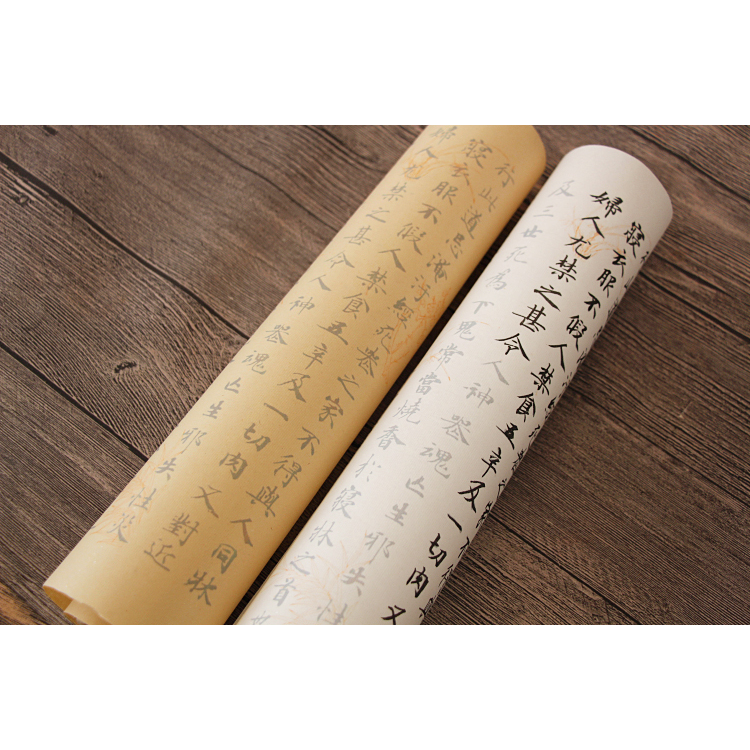 行此道忌淹汙經死喪之家不得與人同牀
寢衣服不假人禁食五辛及一切肉又對近
婦人尤禁之甚令人神喪魂亡生邪失性災
寢衣服不假人禁食五辛及一切肉又
婦人尤禁之甚令人神喪魂亡生邪失性
及三世死為下鬼常當燒香於寢牀之首